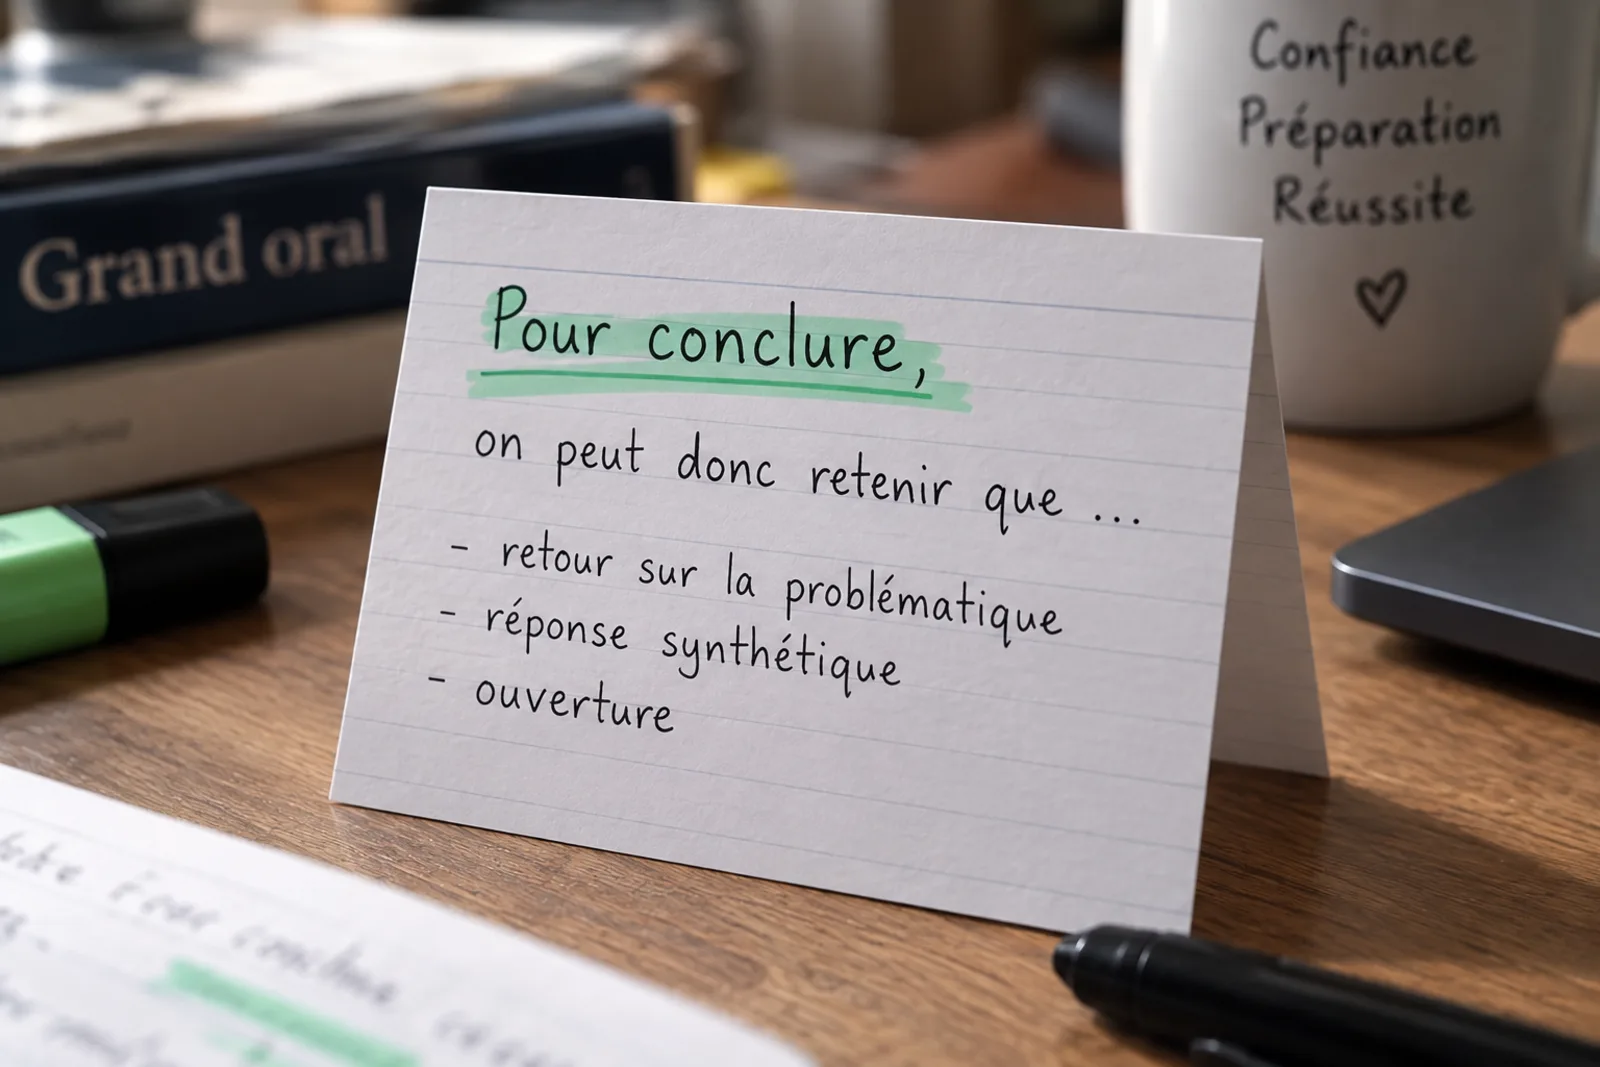 Confiance
Préparation
Réussite
Grand oral
Pour conclure,
on peut donc retenir que ...
- retour sur la problématique
- réponse synthétique
- ouverture